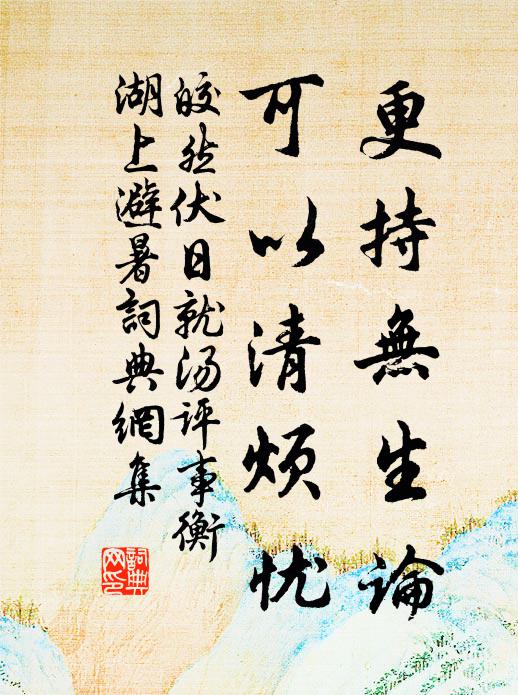 更持無生論
可以清煩忧
皎然伏日就汤评事衡
湖上避暑詞典網集
詞典网印